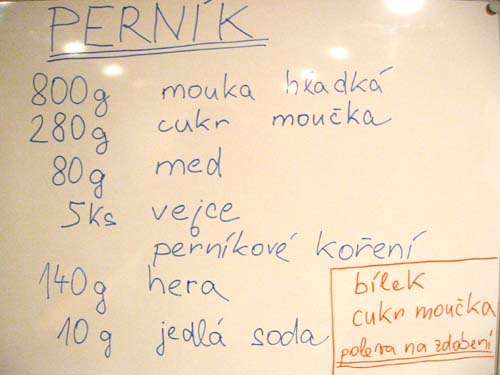 PERNÍK
800g mouka hladká
280g cukr moučka
80g med
5ks vejce
perníkové koření
140g hera
10g jedlá soda
bílek
cukr moučka
poleva na zdobení